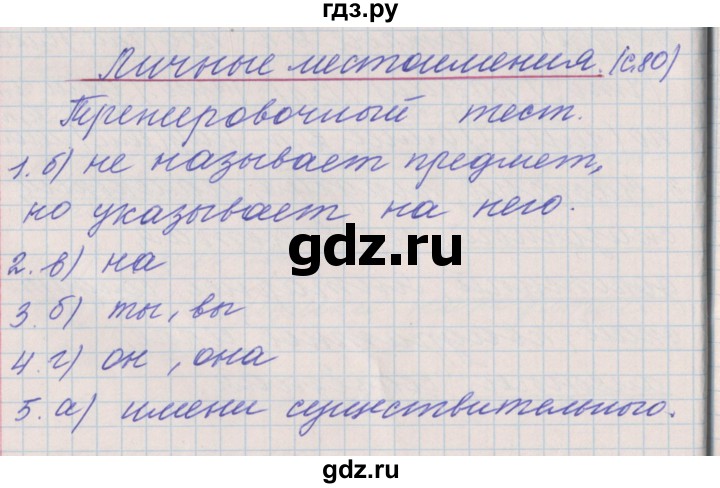 гдз.ру
Личные местоимения. (с.80)
Тренировочный тест.
1. б) не называет предмет,
но указывает на него.
gdz.ru
2. в) на
3. б) ты, вы
4. г) он, она
5. а) имени существительного.
gdz.ru